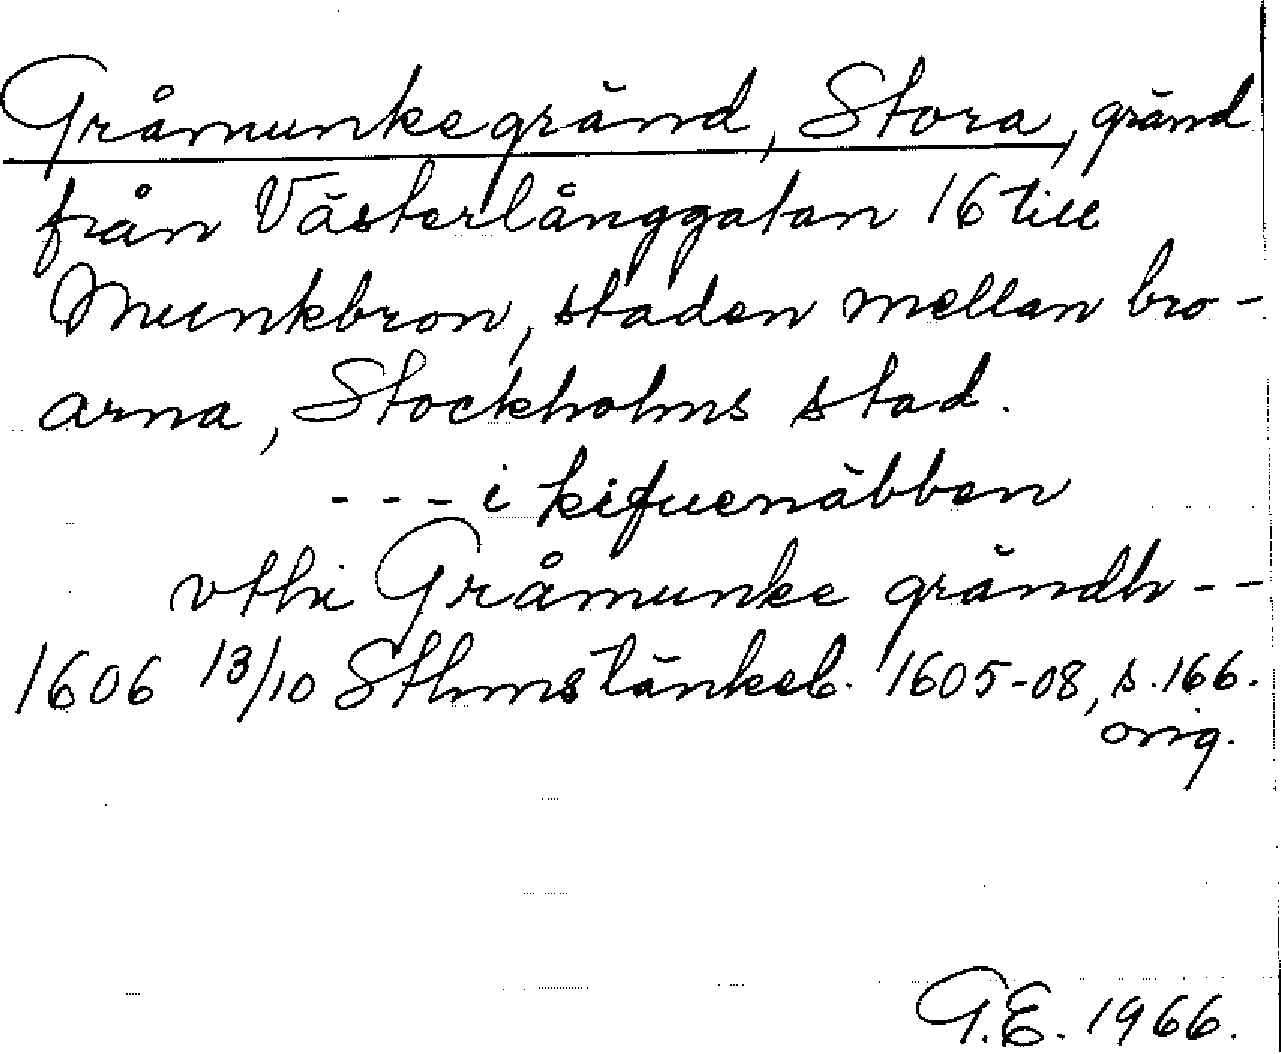 Gråmunkegränd, Stora, gränd
från Västerlånggatan 16 till
Munkbron, staden mellan bro-
arna, Stockholms stad.
- - - i kifuenäbben
vthi Gråmunke grändh - -
1606 13/10 Sthms tänkeb. 1605-08, s. 166.
orig.
G.E. 1966.